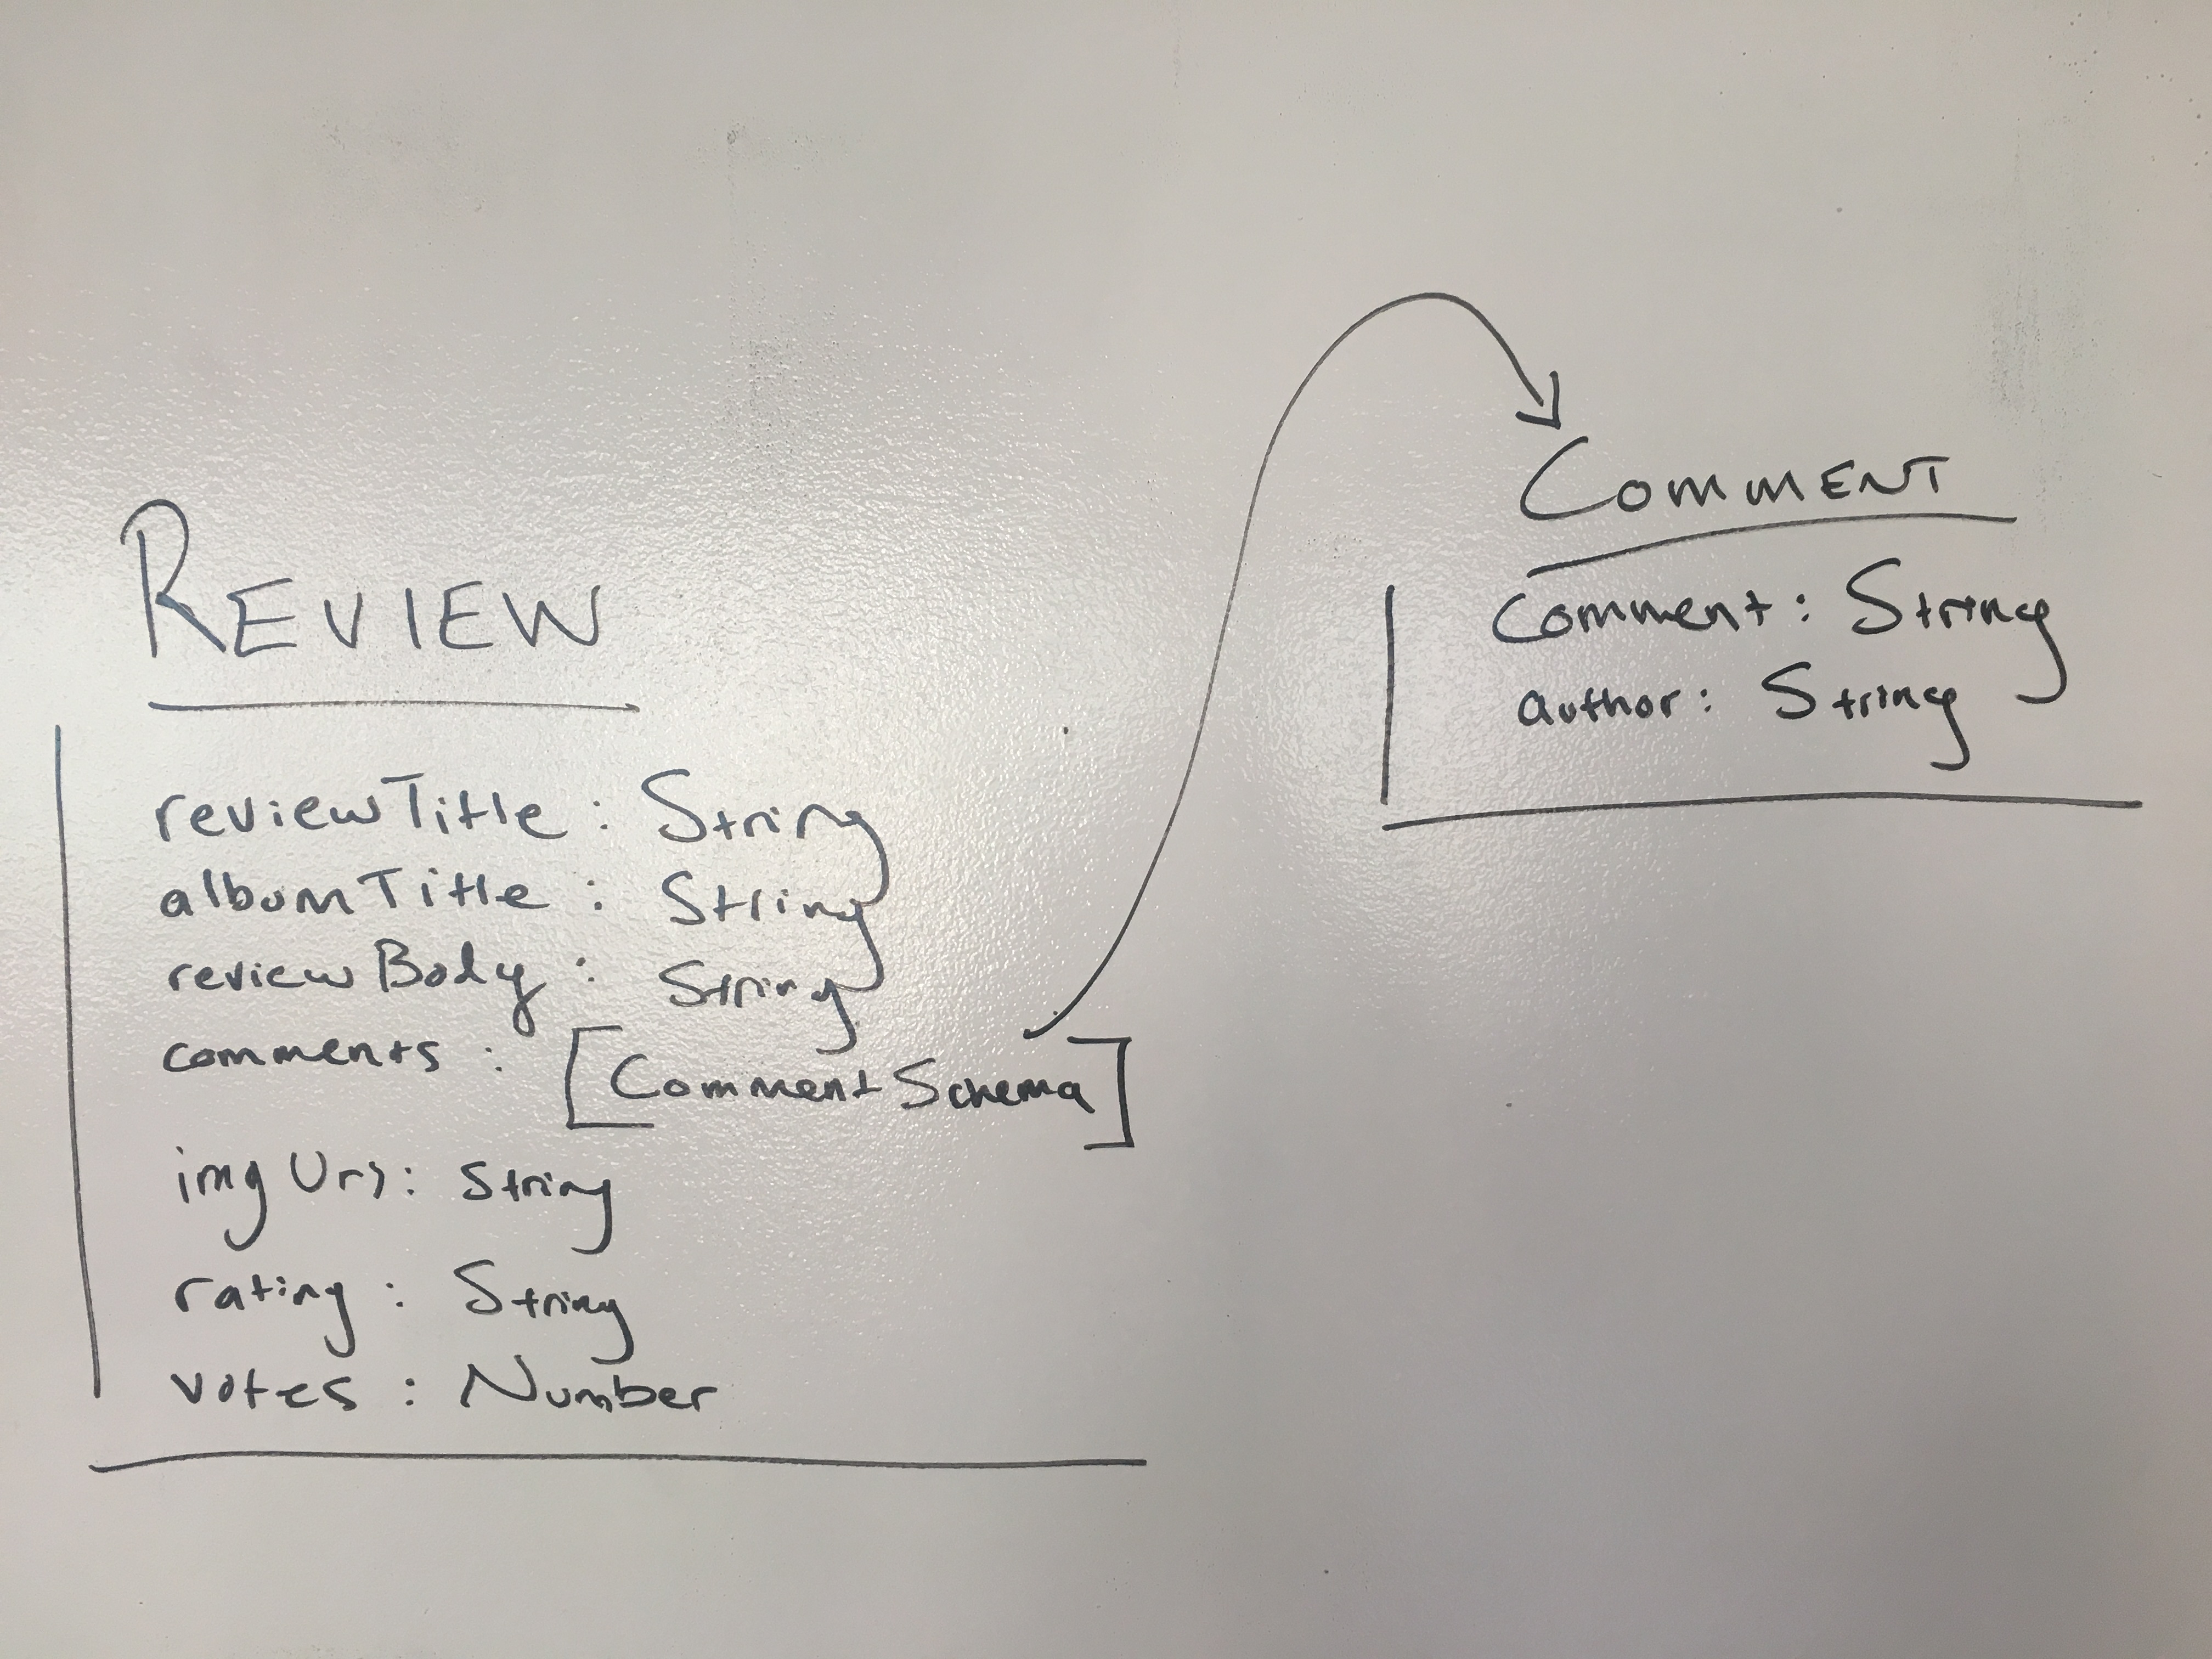 REVIEW
reviewTitle : String
albumTitle : String
reviewBody : String
comments : [CommentSchema]
imgUrl : String
rating : String
votes : Number
COMMENT
Comment : String
author : String